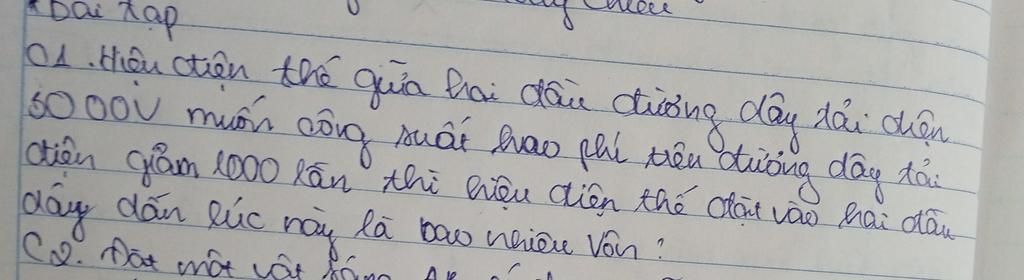 * Bài tập
01. Hiệu điện thế giữa hai đầu đường dây tải điện
5000V muốn công suất hao phí trên đường dây tải
điện giảm 1000 lần thì hiệu điện thế đặt vào hai đầu
dây dẫn lúc này là bao nhiêu Vôn?
C2. Đặt một vật